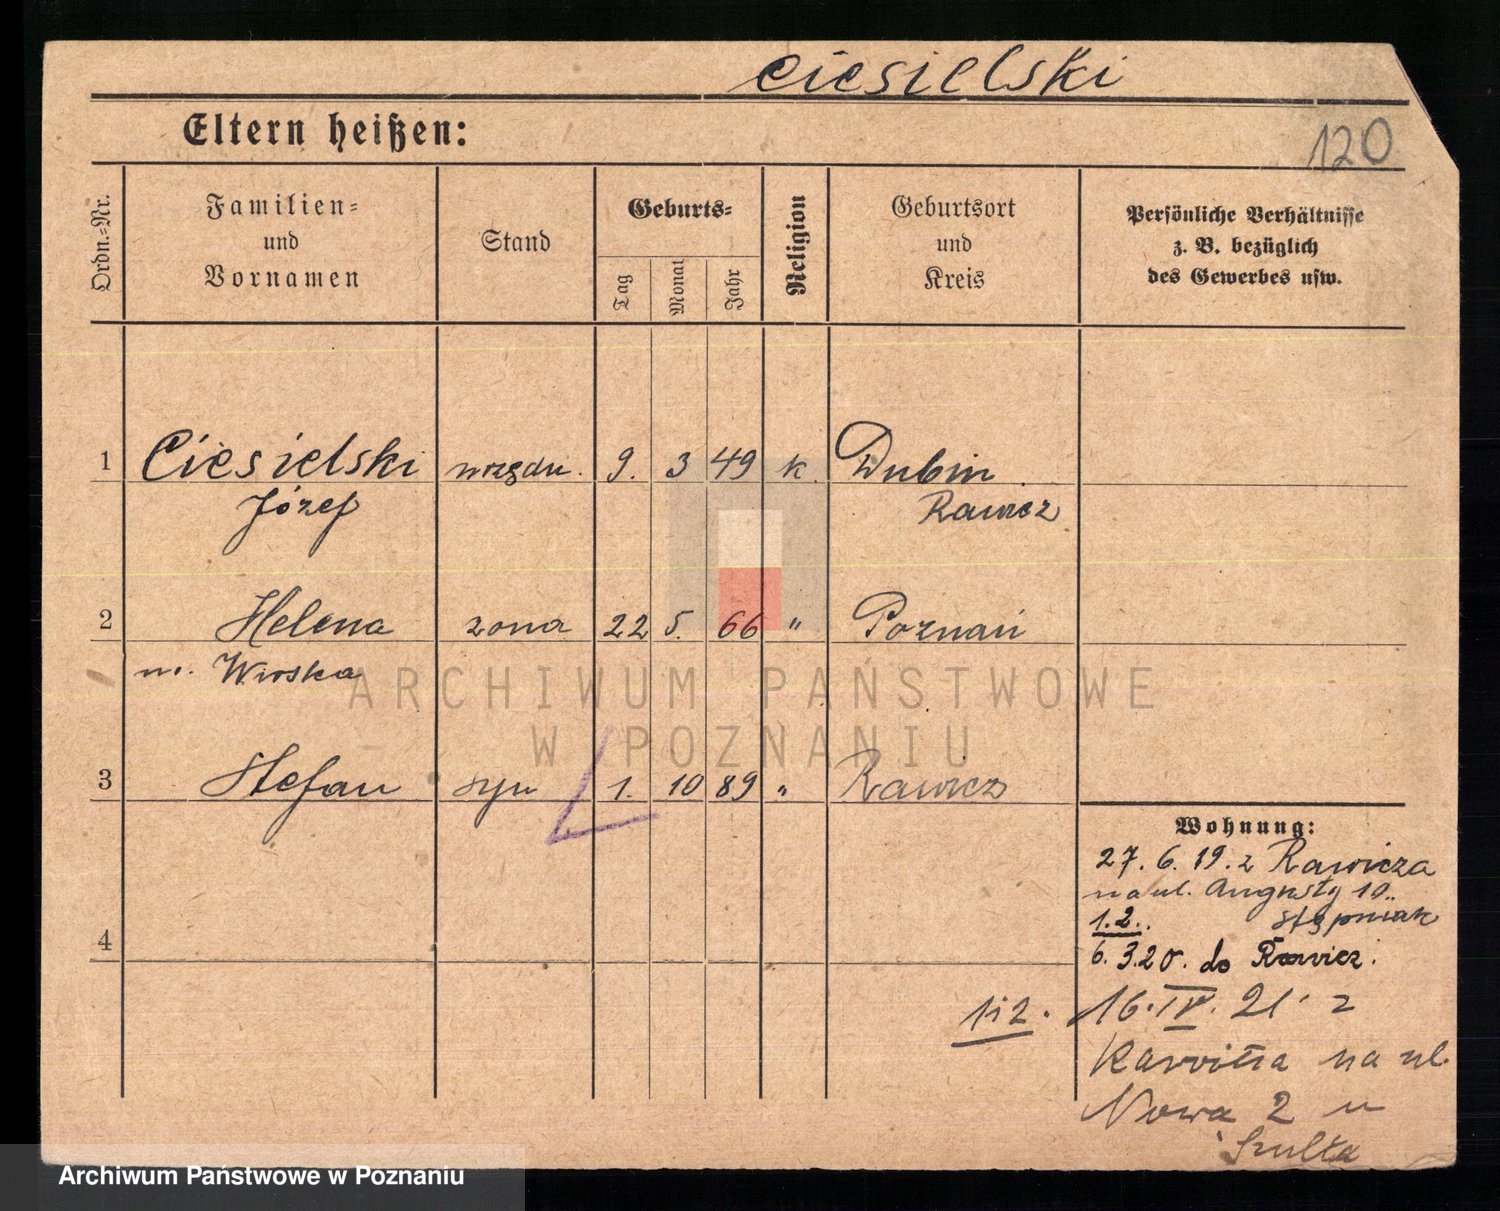 Ciesielski
120
Eltern heißen:
Ordn.-Nr.
Familien-
und
Vornamen
Stand
Geburts-
Tag
Monat
Jahr
Religion
Geburtsort
und
Kreis
Persönliche Verhältnisse
z. B. bezüglich
des Gewerbes usw.
1 Ciesielski urzędn. 9. 3 49 k. Dubin
Józef Rawicz
2 Helena żona 22 5. 66 " Poznań
m. Wioska
3 Stefan syn 1. 10 89 " Rawicz
4
Wohnung:
27. 6. 19. z Rawicza
na ul. Augusty 10.
1.2.. Stępniak
6. 3. 20. do Rawicz.
1i2. 16. IV. 21 z
na ul.
Nowa 2 u
Szulca
ARCHIWUM PAŃSTWOWE
W POZNANIU
Archiwum Państwowe w Poznaniu